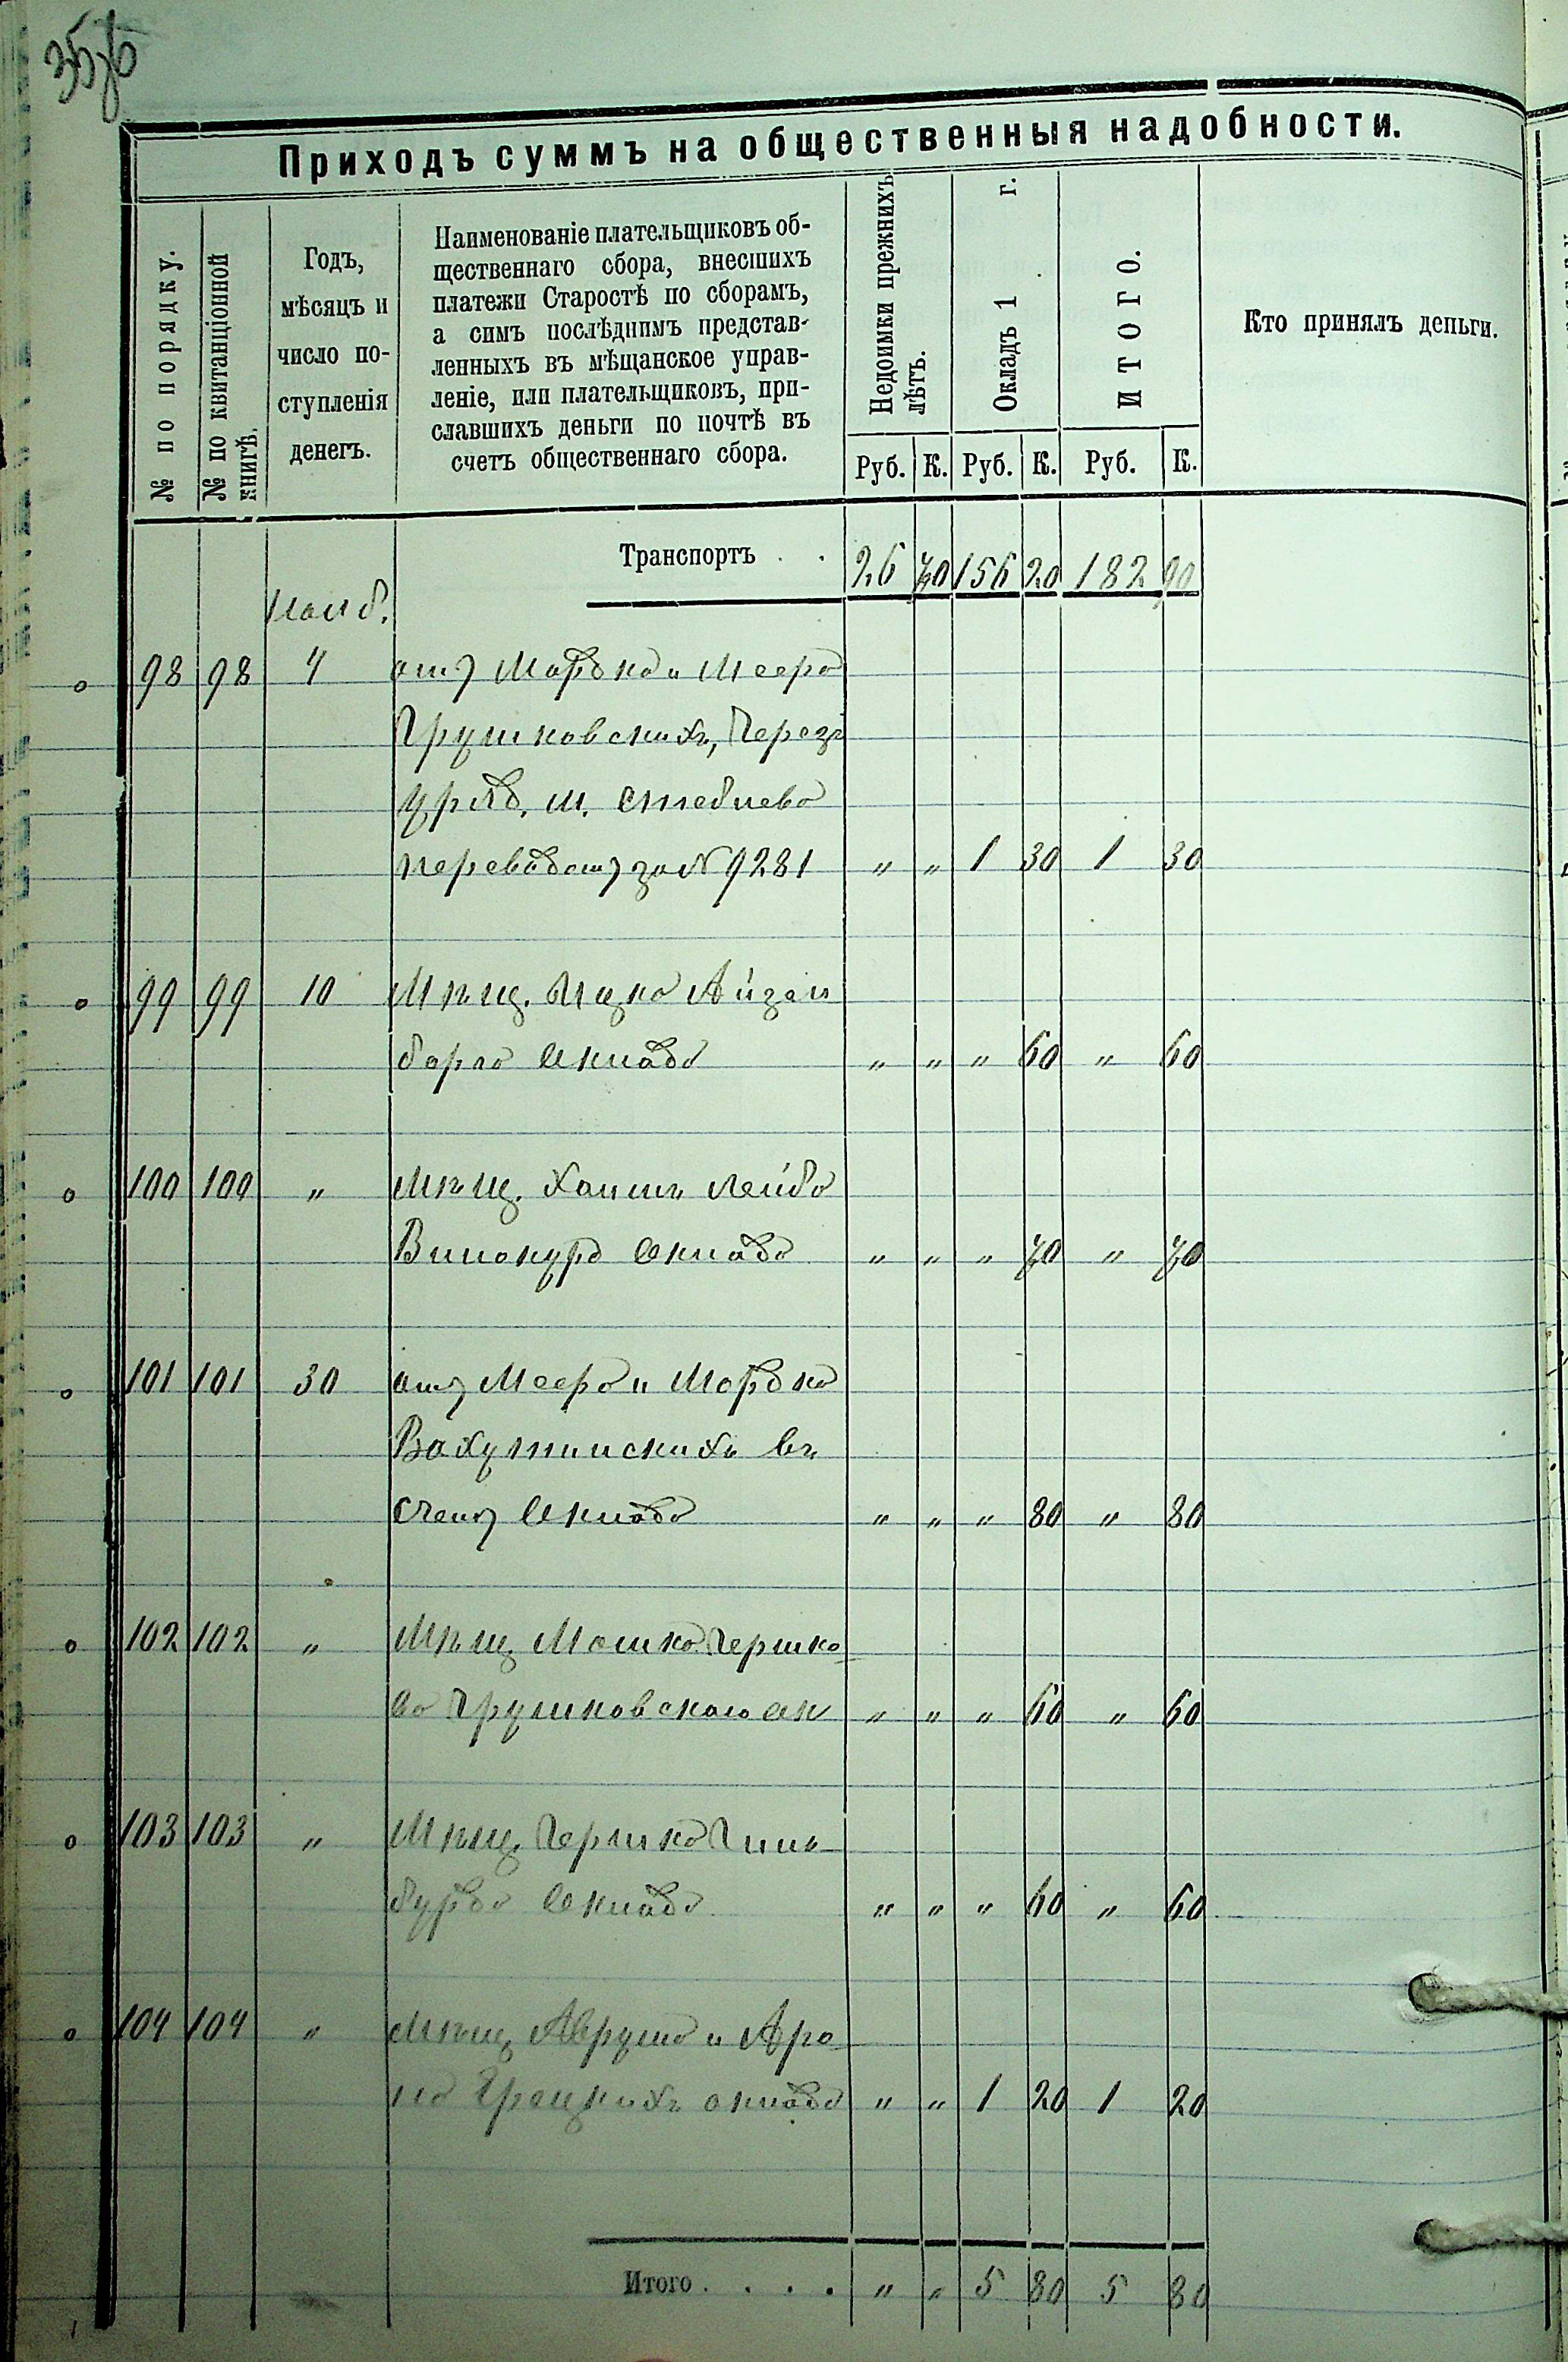 35об
Приходъ суммъ на общественныя надобности.
№ по порядку.
№ по квитанціонной книгѣ.
Годъ,
мѣсяцъ и
число по-
ступленія
денегъ.
Наименованіе плательщиковъ об-
щественнаго сбора, внесшихъ
платежи Старостѣ по сборамъ,
а симъ послѣднимъ представ-
ленныхъ въ мѣщанское управ-
леніе, или плательщиковъ, при-
славшихъ деньги по почтѣ въ
счетъ общественнаго сбора.
Недоимки прежнихъ лѣтъ.
Окладъ 1 г.
ИТОГО.
Кто принялъ деньги.
Руб. К. Руб. К. Руб. К.
Транспортъ . . 26 70 156 20 182 90
Нояб.
98 98 4 отъ Мордка и Меера
Грушковскихъ, Черезъ
Уряд. м. Стеблева
переводомъ за № 9281 " " 1 30 1 30
99 99 10 Мѣщ. Ицка Айзен
барга Оклада " " " 60 " 60
100 100 " Мѣщ. Хаимъ Лейба
Винокура Оклада " " " 70 " 70
101 101 30 отъ Меера и Мордка
Вахутинскихъ въ
счетъ Оклада " " " 80 " 80
102 102 " Мѣщ Мошка Гершко
ва Грушковскаго ок " " " 60 " 60
103 103 " Мѣщ. Гершка Гин
бурда Оклада " " " 60 " 60
104 104 " Мѣщ Аврума и Аро
на Грецкихъ оклада " " 1 20 1 20
Итого . . . . " " 5 80 5 80